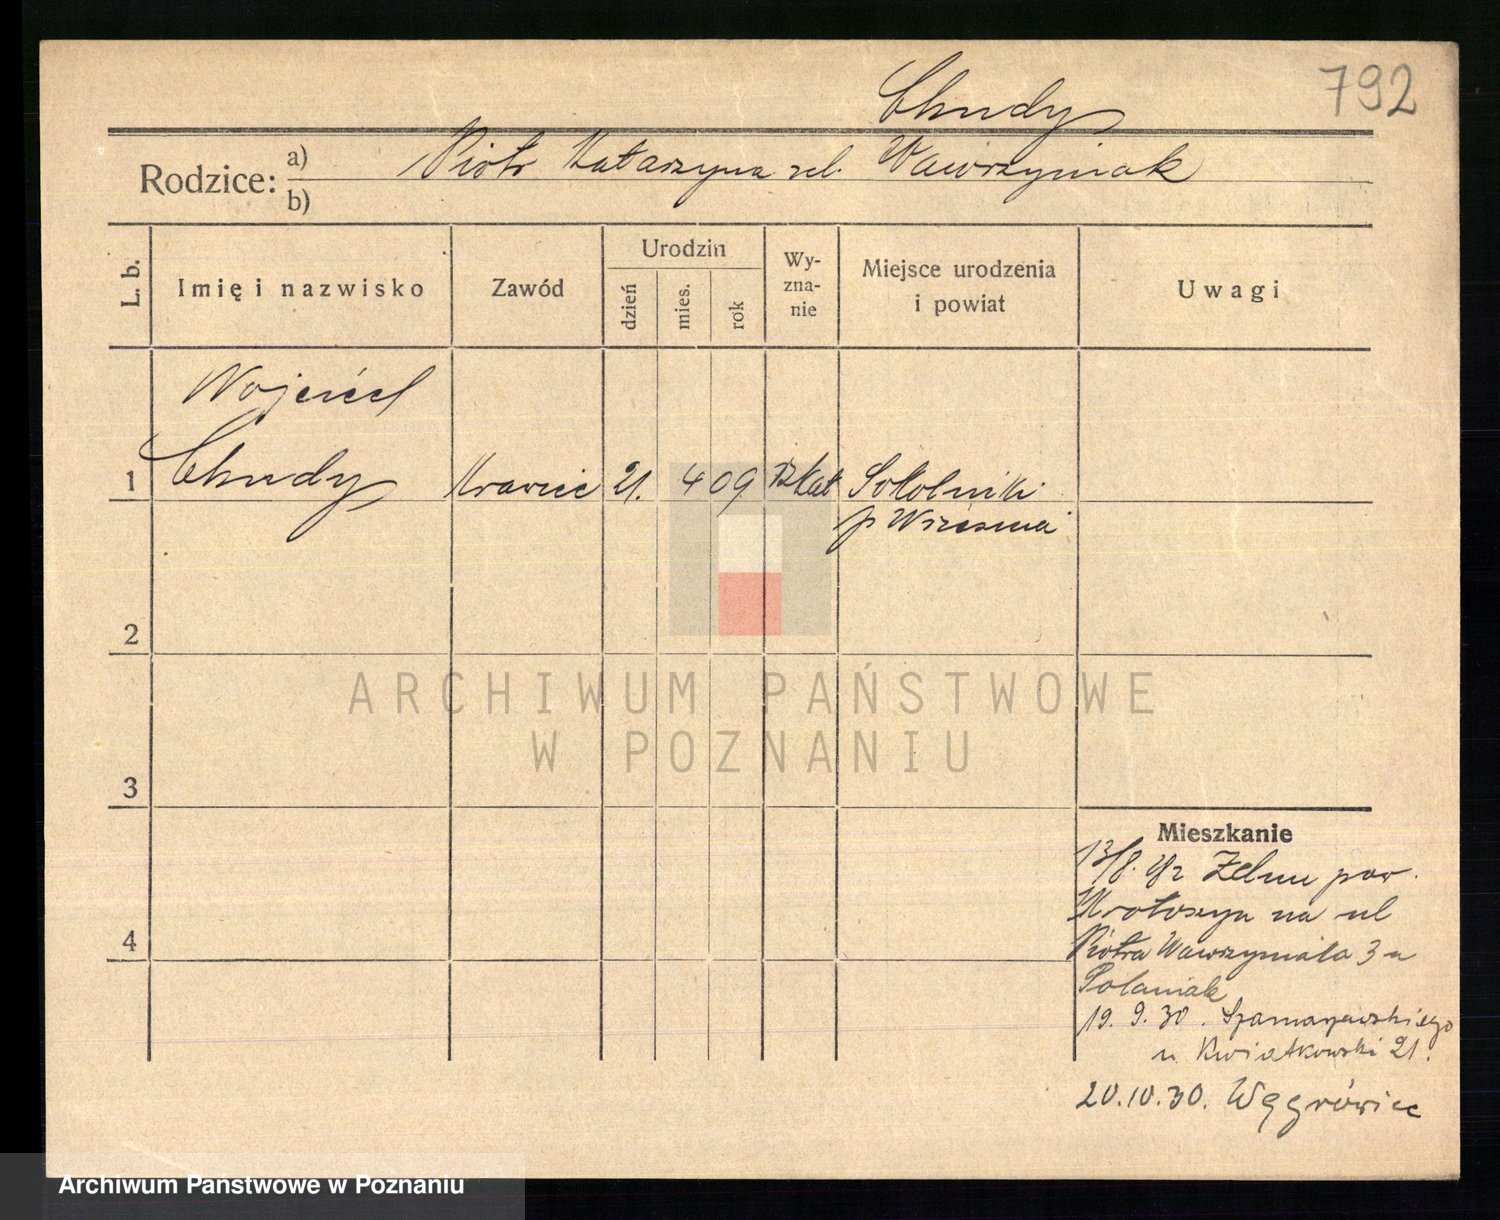 792
Chudy
Rodzice: a) Piotr Katarzyna zd. Wawrzyniak
b)
L. b.
Imię i nazwisko
Zawód
Urodzin
dzień
mies.
rok
Wy-
zna-
nie
Miejsce urodzenia
i powiat
Uwagi
Wojciech
1 Chudy Krawiec 21. 4 09 Rz kat Sokolniki
p Września
2
3
4
Mieszkanie
13/8. pow.
Krotoszyn na ul
Piotra Wawrzyniaka 3 u
Polaniak
19. 9. 30. Szamarzewskiego
u Kwiatkowski 21.
20.10.30. Węgrówiec
ARCHIWUM PAŃSTWOWE
W POZNANIU
Archiwum Państwowe w Poznaniu